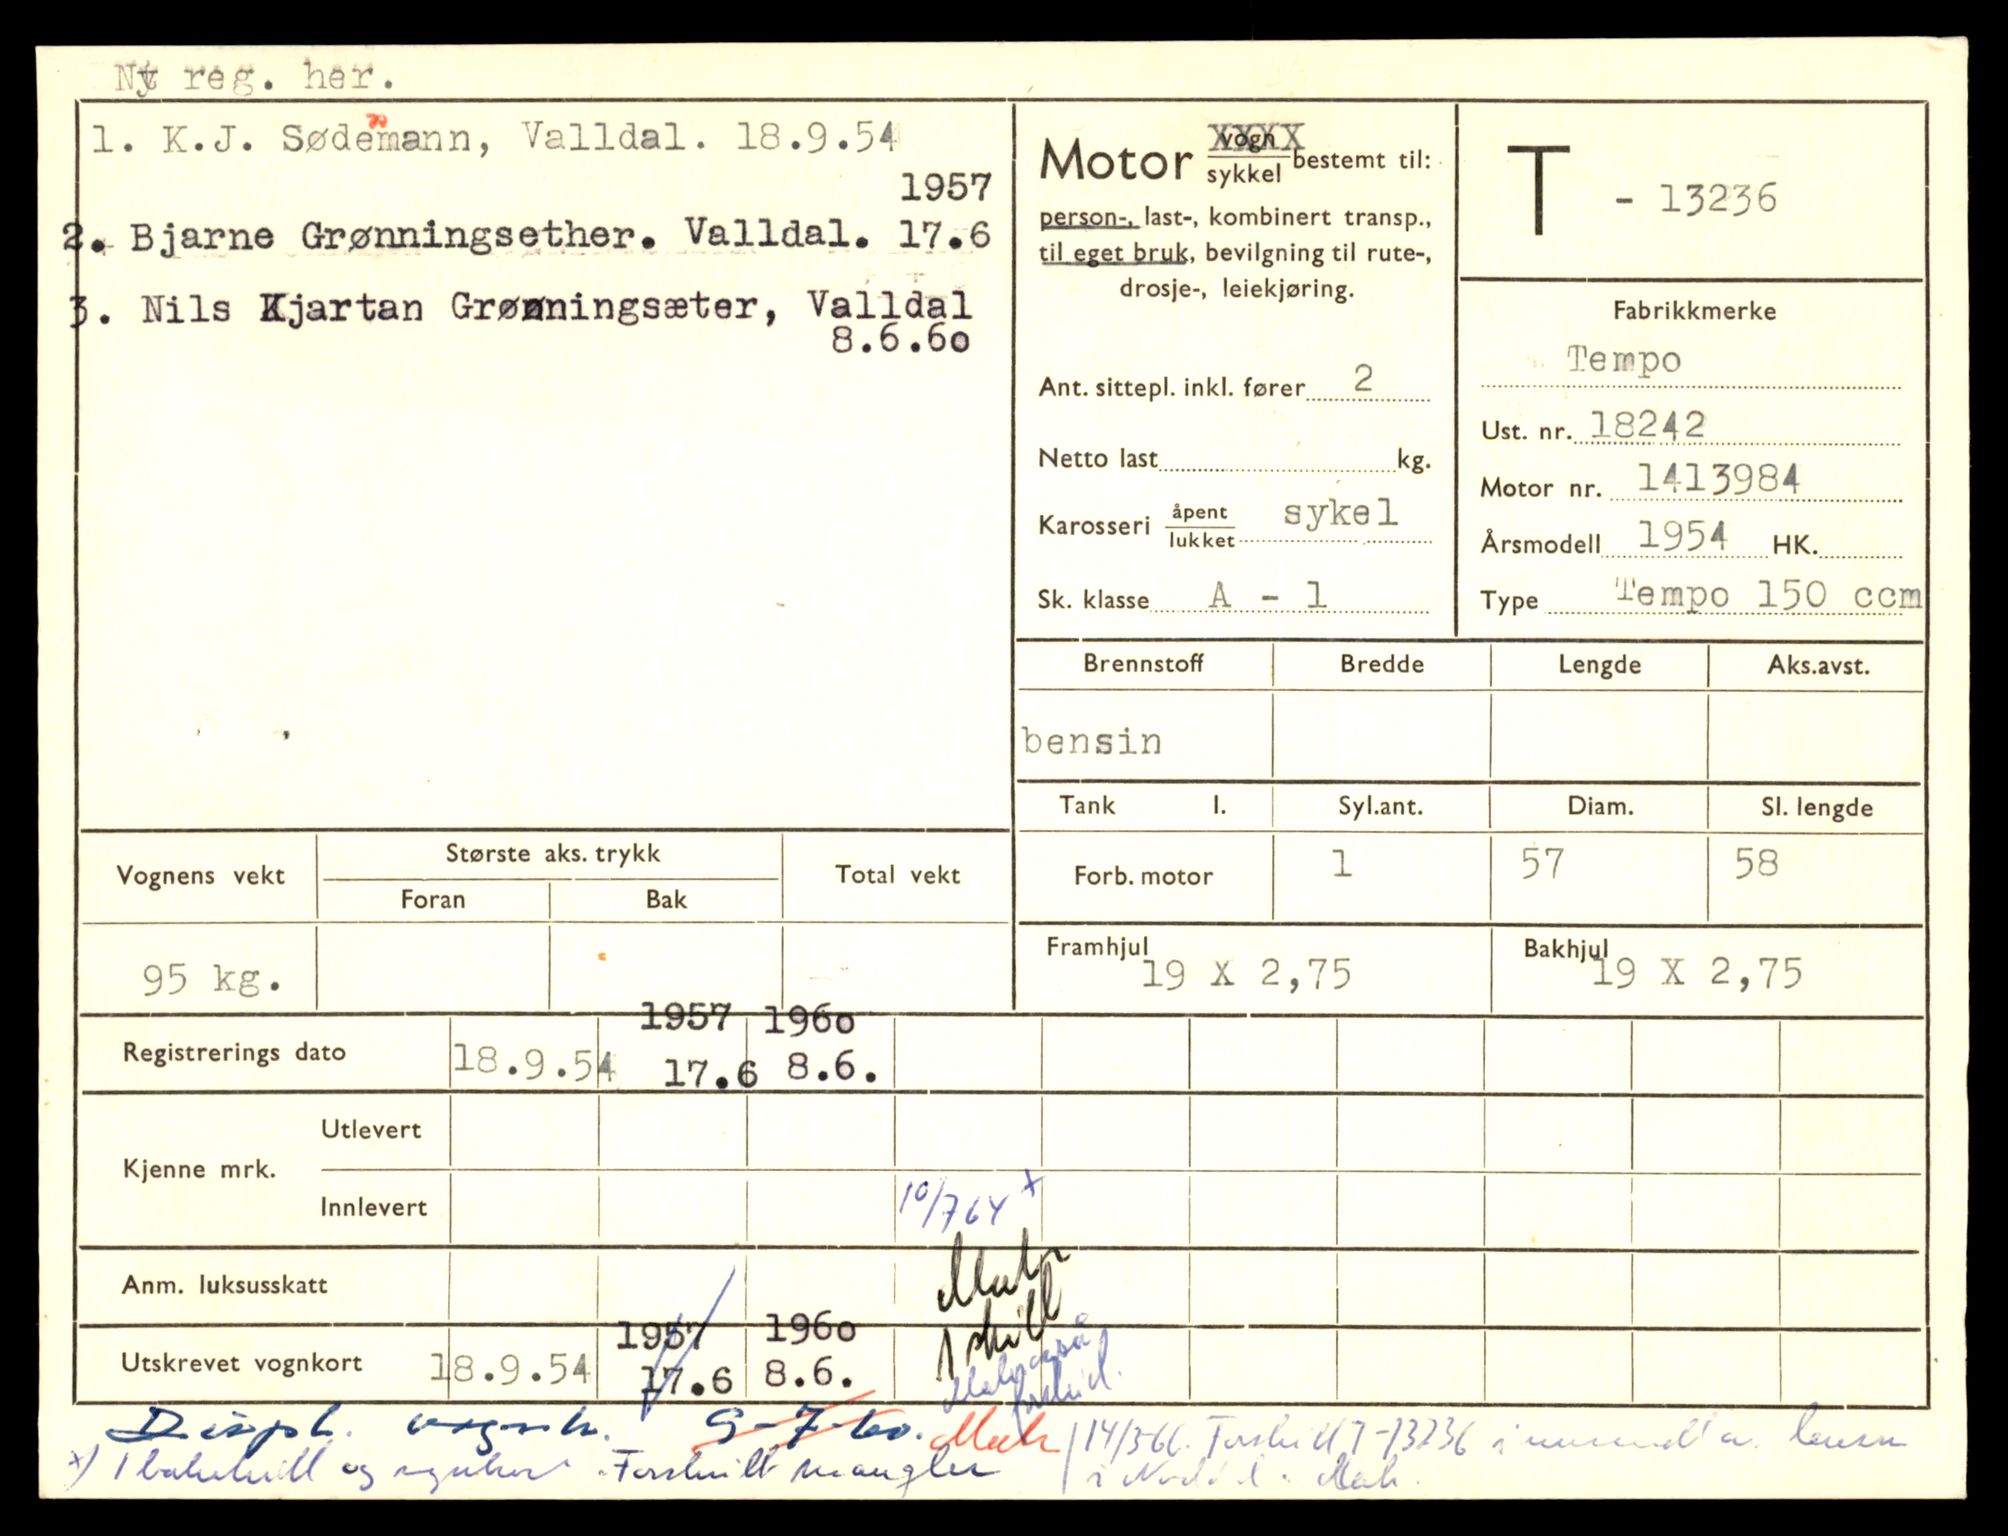 Ny reg. her.
1. K.J. Sødemann, Valldal. 18.9.54
n
1957
2. Bjarne Grønningsether. Valldal. 17.6
3. Nils Kjartan Grønningsæter, Valldal
8.6.60
Motor vogn/sykkel bestemt til:
XXXX
person-, last-, kombinert transp.,
til eget bruk, bevilgning til rute-,
drosje-, leiekjøring.
Ant. sittepl. inkl. fører 2
Netto last kg.
Karosseri åpent/lukket sykel
Sk. klasse A - 1
T - 13236
Fabrikkmerke
Tempo
Ust. nr. 18242
Motor nr. 1413984
Årsmodell 1954 HK.
Type Tempo 150 ccm
Brennstoff Bredde Lengde Aks.avst.
bensin
Tank l. Syl.ant. Diam. Sl. lengde
Forb. motor 1 57 58
Framhjul 19 X 2,75 Bakhjul 19 X 2,75
Vognens vekt Største aks. trykk Total vekt
Foran Bak
95 kg.
1957 1960
Registrerings dato 18.9.54 17.6 8.6.
Kjenne mrk. Utlevert
Innlevert 10/7 64 x
Mak
1 skilt
Anm. luksusskatt
1957 1960
Utskrevet vognkort 18.9.54 17.6 8.6.
Mak også
forskilt.
Dispb. vognk. 9-7-60. Mak
14/3-66. Forskilt T-13236
x) 1 bakskilt og vognkort. Forskilt mangler
Mak.